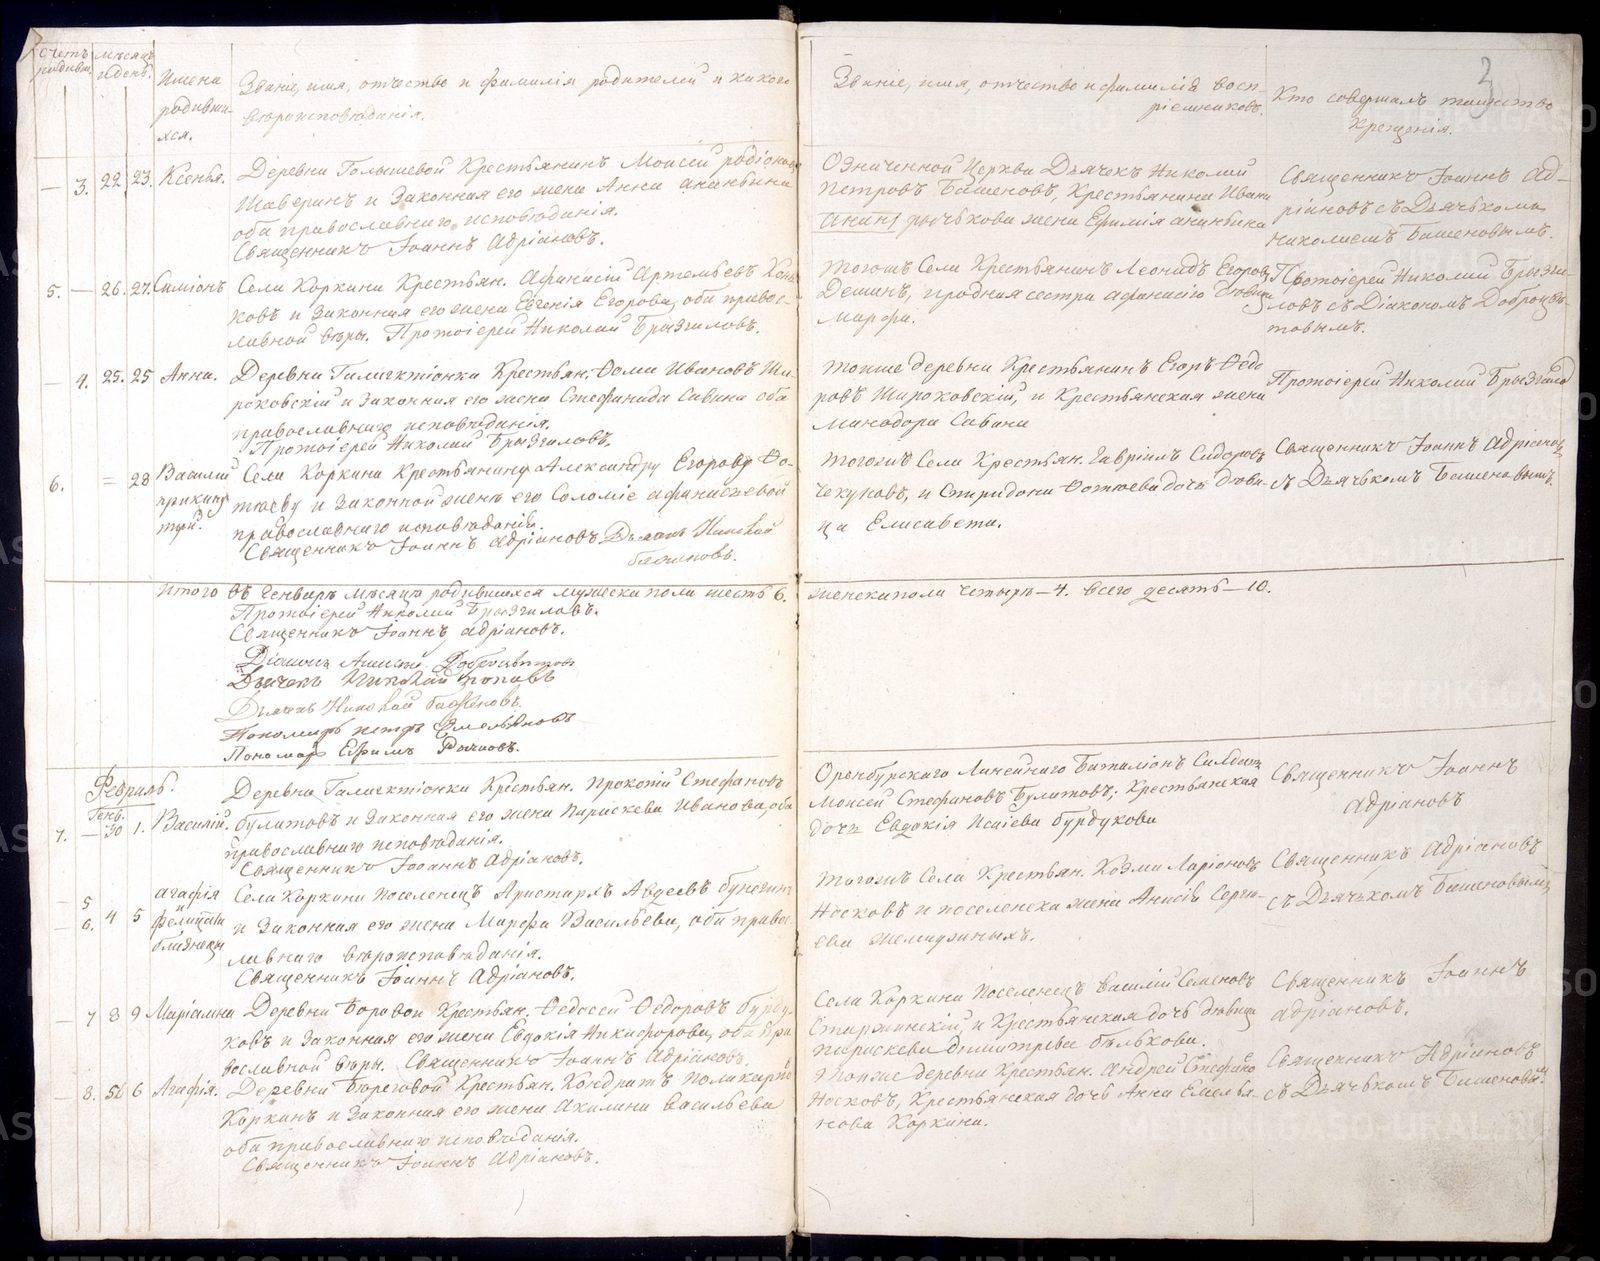 Счетъ родивш.
Мѣсяцъ и день.
Имена родивши-
хся.
Званіе, имя, отчество и фамилія родителей и какого
вѣроисповѣданія.
Званіе, имя, отчество и фамилія восп-
ріемниковъ.
Кто совершалъ таинство
крещенія.
3
— 3. 22 23. Ксенья.
Деревни Голышевой Крестьянинъ Моисей родіоновъ
Шаверинъ и Законная его жена Анна ананьина
оба православнаго исповѣданія.
Священникъ Іоаннъ Адріановъ.
Означенной Церкви Дьячекъ Николай
Петровъ Баженовъ, Крестьянина Ивана
рычькова жена Ефимія ананьина
Священникъ Іоаннъ Ад-
ріановъ съ Дьячькомъ
Николаемъ Баженовымъ.
5. — 26. 27. Симіонъ
Села Коркина Крестьян. Афанасій Артемьевъ
ковъ и Законная его жена Евгенія Егорова, оба правос-
лавной вѣры. Протоіерей Николай Брызгаловъ.
тогожъ Села Крестьянинъ Леонидъ Егоровъ
Дешинъ, и родная сестра Афанасію Дѣвица
Марфа.
Протоіерей Николай Брызга-
ловъ съ Діакономъ Доброцвѣ-
товымъ.
— 4. 25. 25 Анна.
Деревни Галиактіонки Крестьян. Ѳома Ивановъ Ши-
роковскій и Законная его жена Стефанида Савина оба
православнаго исповѣданія.
Протоіерей Николай Брызгаловъ.
тойже деревни Крестьянинъ Егоръ Ѳедо
ровъ Широковскій, и Крестьянская жена
Минодора Савина
Протоіерей Николай Брызгалов
6. = 28 Василій
прикинутый.
Села Коркина Крестьянину Александру Егорову Ѳо-
тюеву и Законной женѣ его Соломіе афанасьевой
православнаго исповѣданія.
Священникъ Іоаннъ Адріановъ Дьячекъ Николай
баженовъ.
тогожъ Села Крестьян. Гавріилъ Сидоровъ
Чекуновъ, и Спиридона Ѳотюева дочь дѣви-
ца Елисавета.
Священникъ Іоаннъ Адріановъ
съ Дьячькомъ Баженовымъ.
Итого въ Генварѣ мѣсяцѣ родившихся мужеска пола шесть 6. женска пола четыре — 4. всего десять — 10.
Протоіерей Николай Брызгаловъ.
Священникъ Іоаннъ Адріановъ.
Діаконъ Доброцвѣтовъ
Дьячекъ Николай поповъ
Дьячекъ Николай баженовъ.
Пономарь петръ Емельяновъ
Пономарь Ефимъ Рычковъ.
Февраль.
Генв.
7. — 30 1. Василій.
Деревни Галиактіонки Крестьян. Прокопій Стефановъ
булатовъ и Законная его жена Параскева Иванова, оба
православнаго исповѣданія.
Священникъ Іоаннъ Адріановъ.
Оренбургскаго Линейнаго Баталіонъ Солдатъ
Моисей Стефановъ Булатовъ; Крестьянская
дочь Евдокія Исаіева бурдукова
Священникъ Іоаннъ
Адріановъ
— 5
— 6. 4 5 Агафія
и
Фелицата
близнецы
Села Коркина поселенецъ Аристархъ Авдеевъ
и Законная его жена Марфа Васильева, оба правос-
лавнаго вѣроисповѣданія.
Священникъ Іоаннъ Адріановъ.
тогожъ Села Крестьян. Козма Ларіоновъ
Носковъ и поселенска жена Анисія Серги-
ева
Священникъ Адріановъ
съ Дьячькомъ Баженовымъ
— 7 8 9 Маріамна
Деревни Боровой Крестьян. Ѳедосей Ѳедоровъ бурду-
ковъ и Законная его жена Евдокія Никифорова, оба пра
вославной вѣры. Священникъ Іоаннъ Адріановъ.
Села Коркина Поселенецъ Василій Семеновъ
Старжинскій, и Крестьянская дочь дѣвица
Параскева Димитрева бѣлькова.
Священникъ Іоаннъ
Адріановъ.
— 8. 5 6 Агафія.
Деревни Береговой Крестьян. Кондратъ поликарпо
Коркинъ и Законная его жена Акилина Васильева
оба православнаго исповѣданія.
Священникъ Іоаннъ Адріановъ.
тойже деревни Крестьян. Андрей Стефано
Носковъ, Крестьянская дочь Анна Емелья-
нова Коркина.
Священникъ Адріановъ
съ Дьячькомъ Баженовым.